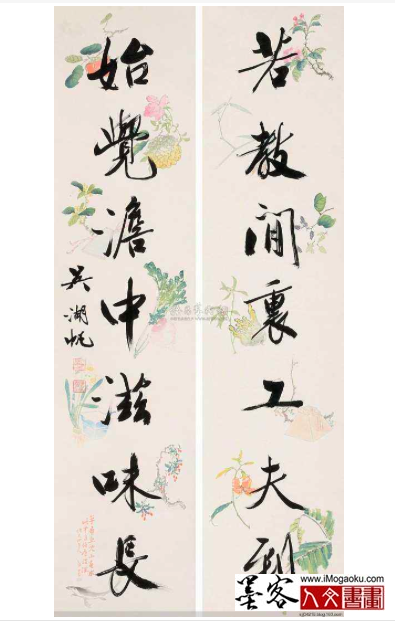 若教閒裏工夫到
始覺澹中滋味長
吳湖帆
墨客
www.iMogaoku.com
人文書畫